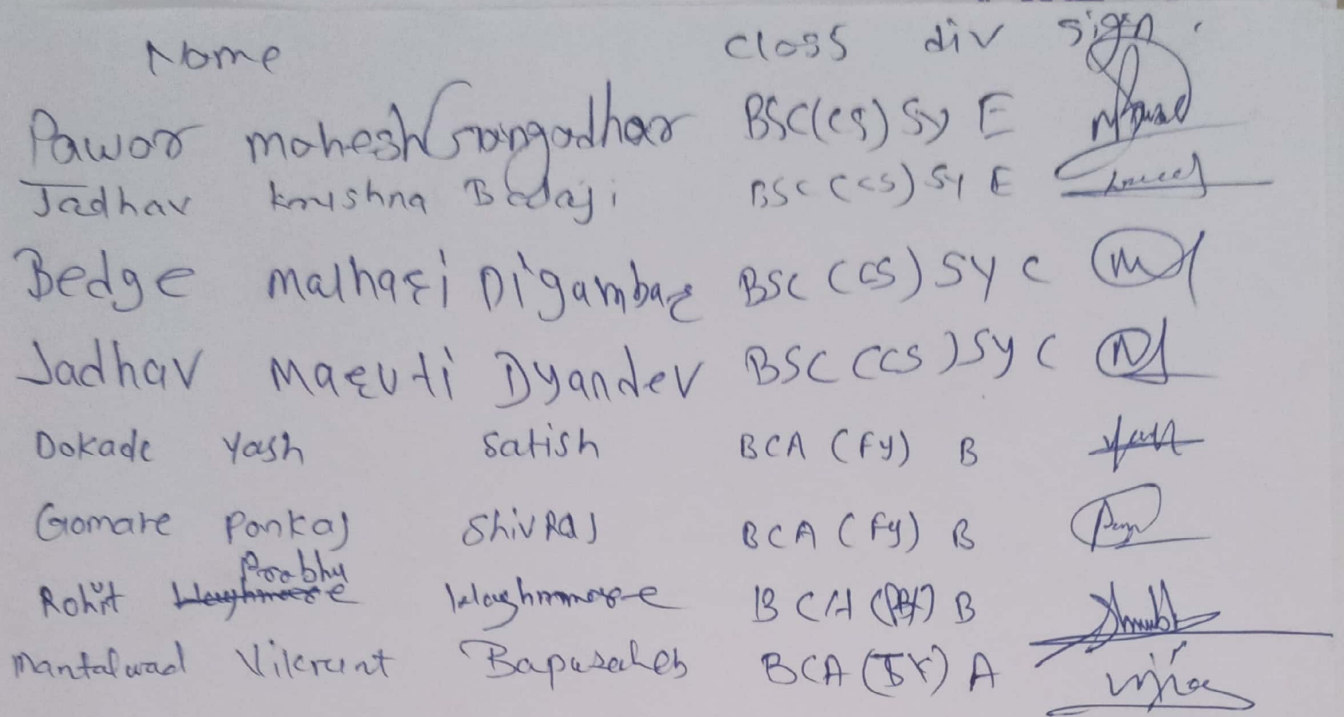 Name class div sign.
Pawar mahesh Gangadhar BSC(CS) Sy E
Jadhav krushna Badaji BSC (CS) Sy E
Bedge malhari Digambar BSC (CS) SY C
Jadhav Maruti Dyandev BSC (CS) SY C
Dokade Yash Satish BCA (Fy) B Yash
Gomare Pankaj Shivraj BCA (Fy) B
Prabhu
Rohit Waghmare BCA B
Mantalwad Vikrant Bapusaheb BCA A